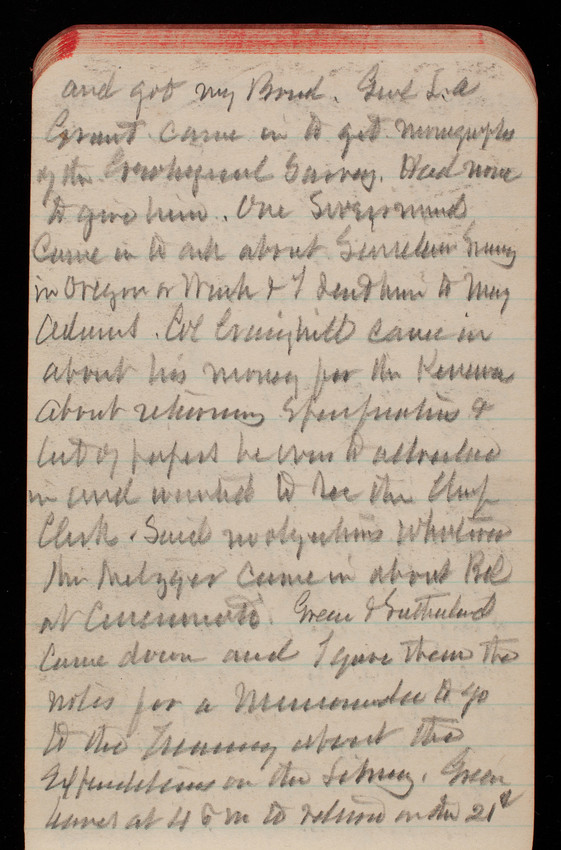 and got my Bond. Genl L.A
Grant came in to get monographs
of the Geological Survey. Had none
to give him. One
came in to ask about
in Oregon or Wash & I sent him to Maj
Adams. Col Craighill came in
about his money for the Kanawha
about returning Specifications &
list of papers he was to advertise
in and wanted to see the Chief
Clerk. Said no objections whatever
Mr Metzger came in about
at Cincinnati. Green & Sutherland
came down and I gave them the
notes for a Memoranda to go
to the Treasury about the
Expenditures on the Library. Green
leaves at 4 P M to return on the 21st